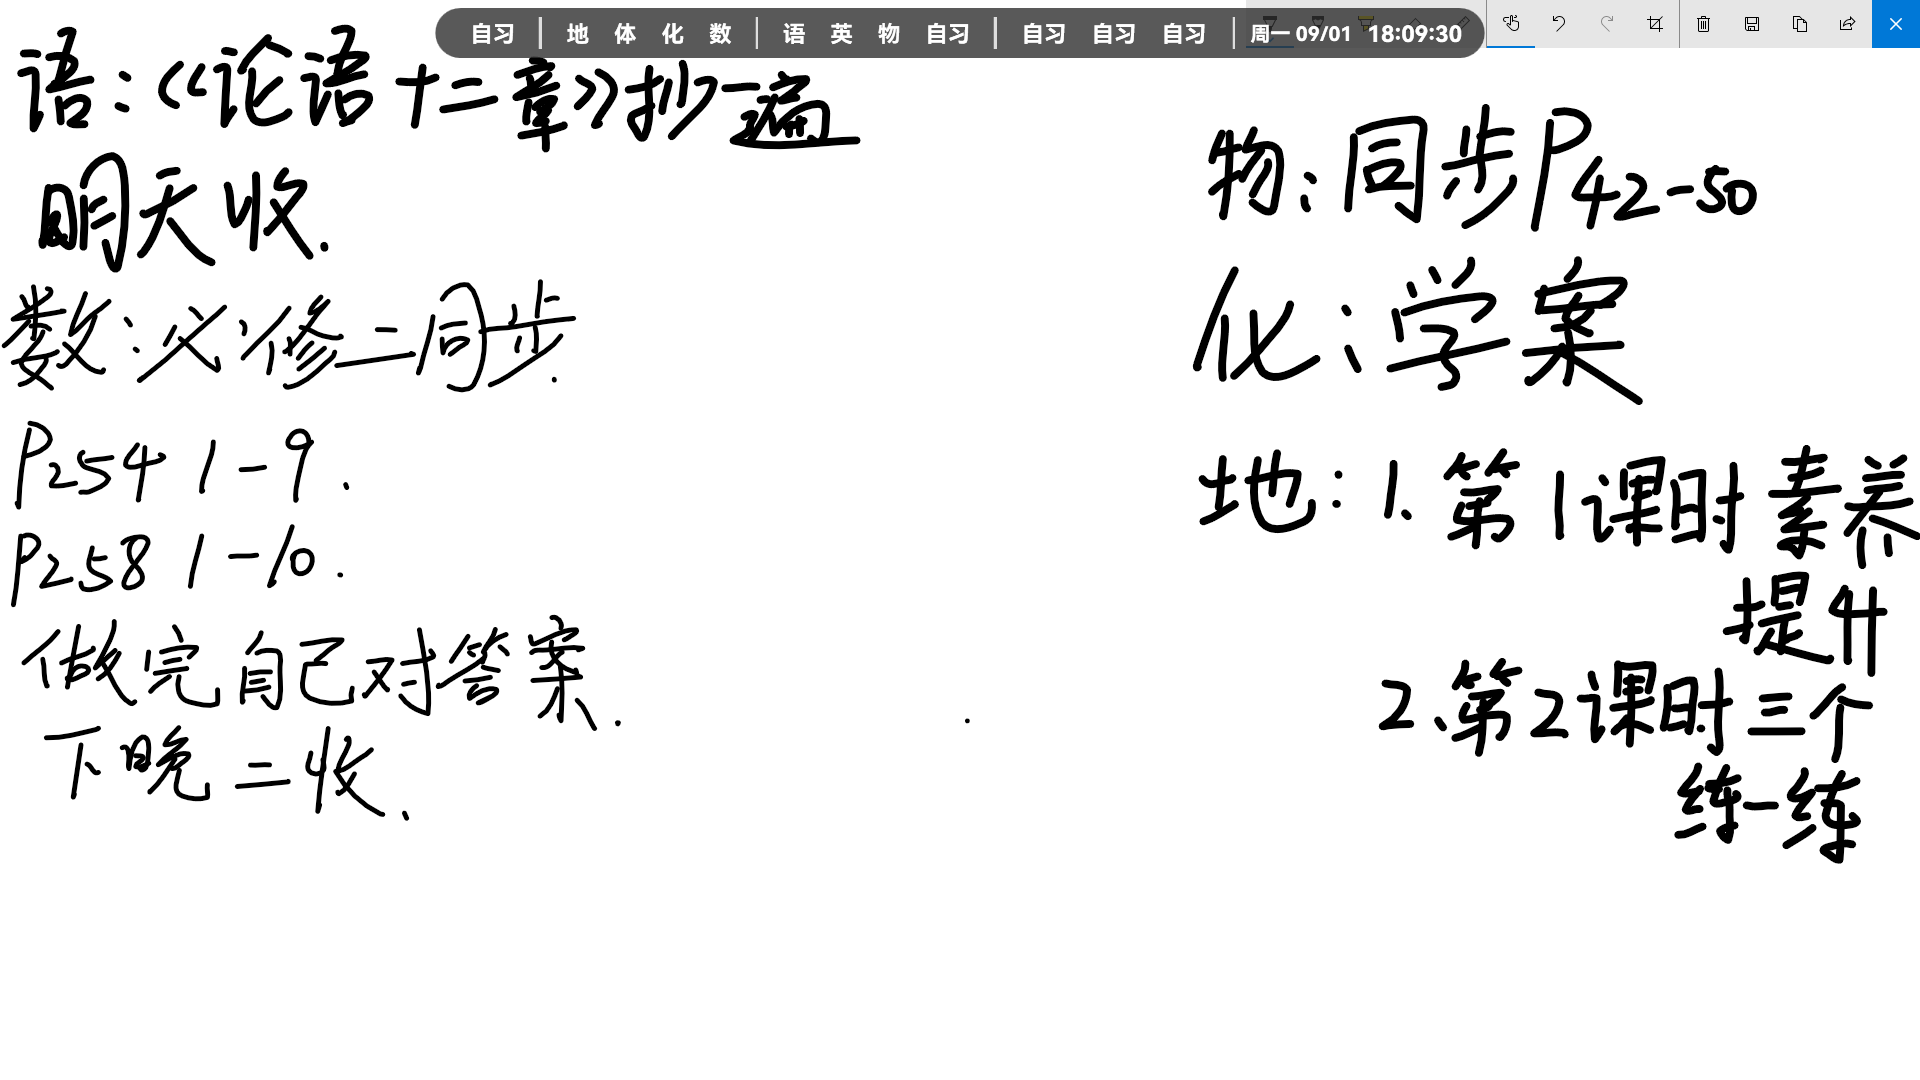 自习 | 地 体 化 数 | 语 英 物 自习 | 自习 自习 自习 | 周一 09/01 18:09:30
语:《论语十二章》抄一遍
明天收.
数:必修二同步.
P254 1-9.
P258 1-10.
做完自己对答案.
下晚二收.
物:同步P42-50
化:学案
地:1.第1课时素养
提升
2.第2课时三个
练一练